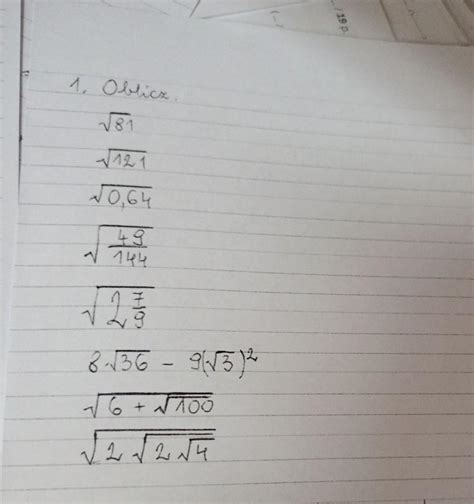 /18p.
1. Oblicz.
√81
√121
√0,64
√(49/144)
√(2 7/9)
8√36 - 9(√3)²
√(6 + √100)
√(2√(2√4))